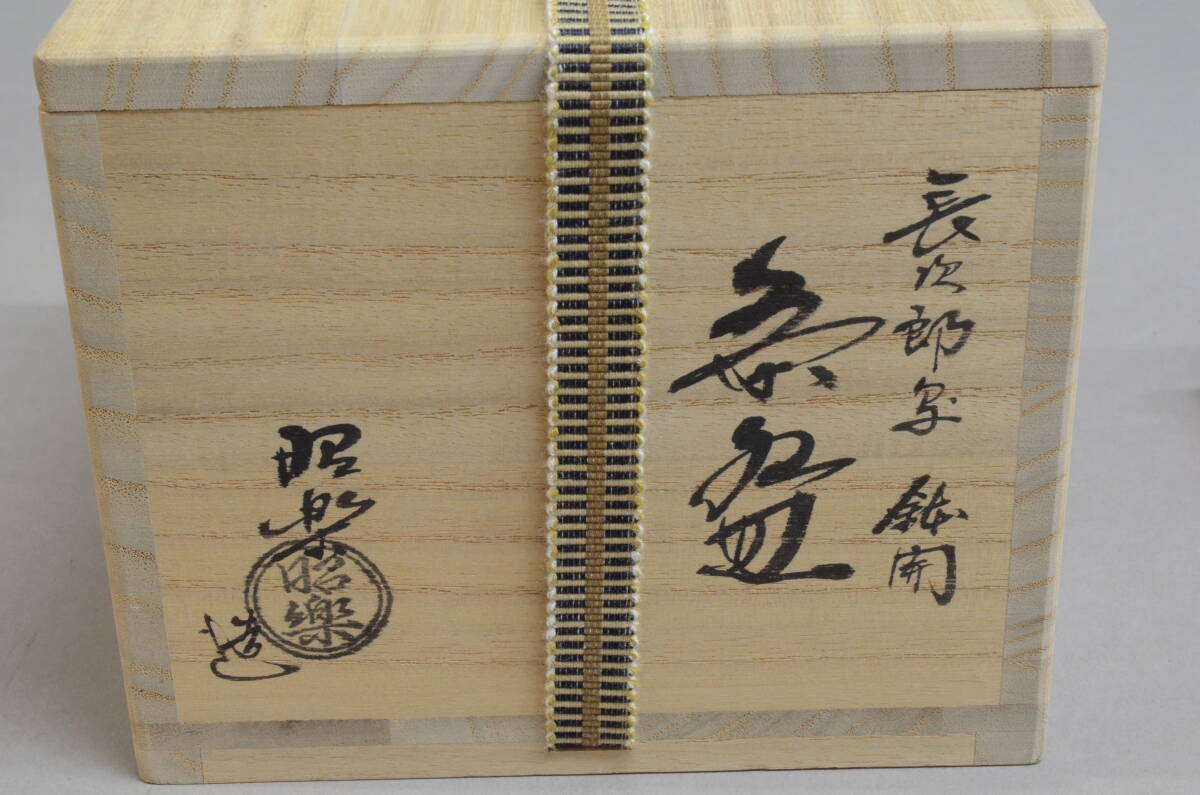 長次郎写 鉢開
茶盌
昭楽
造
昭樂